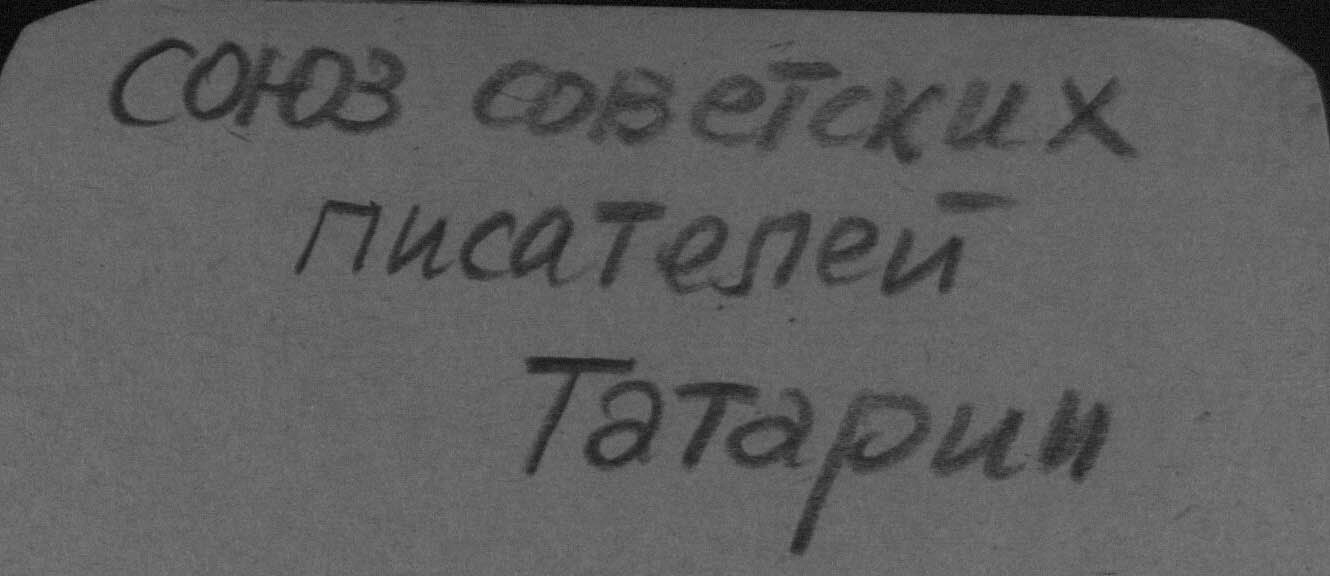 Союз советских
писателей
Татарии